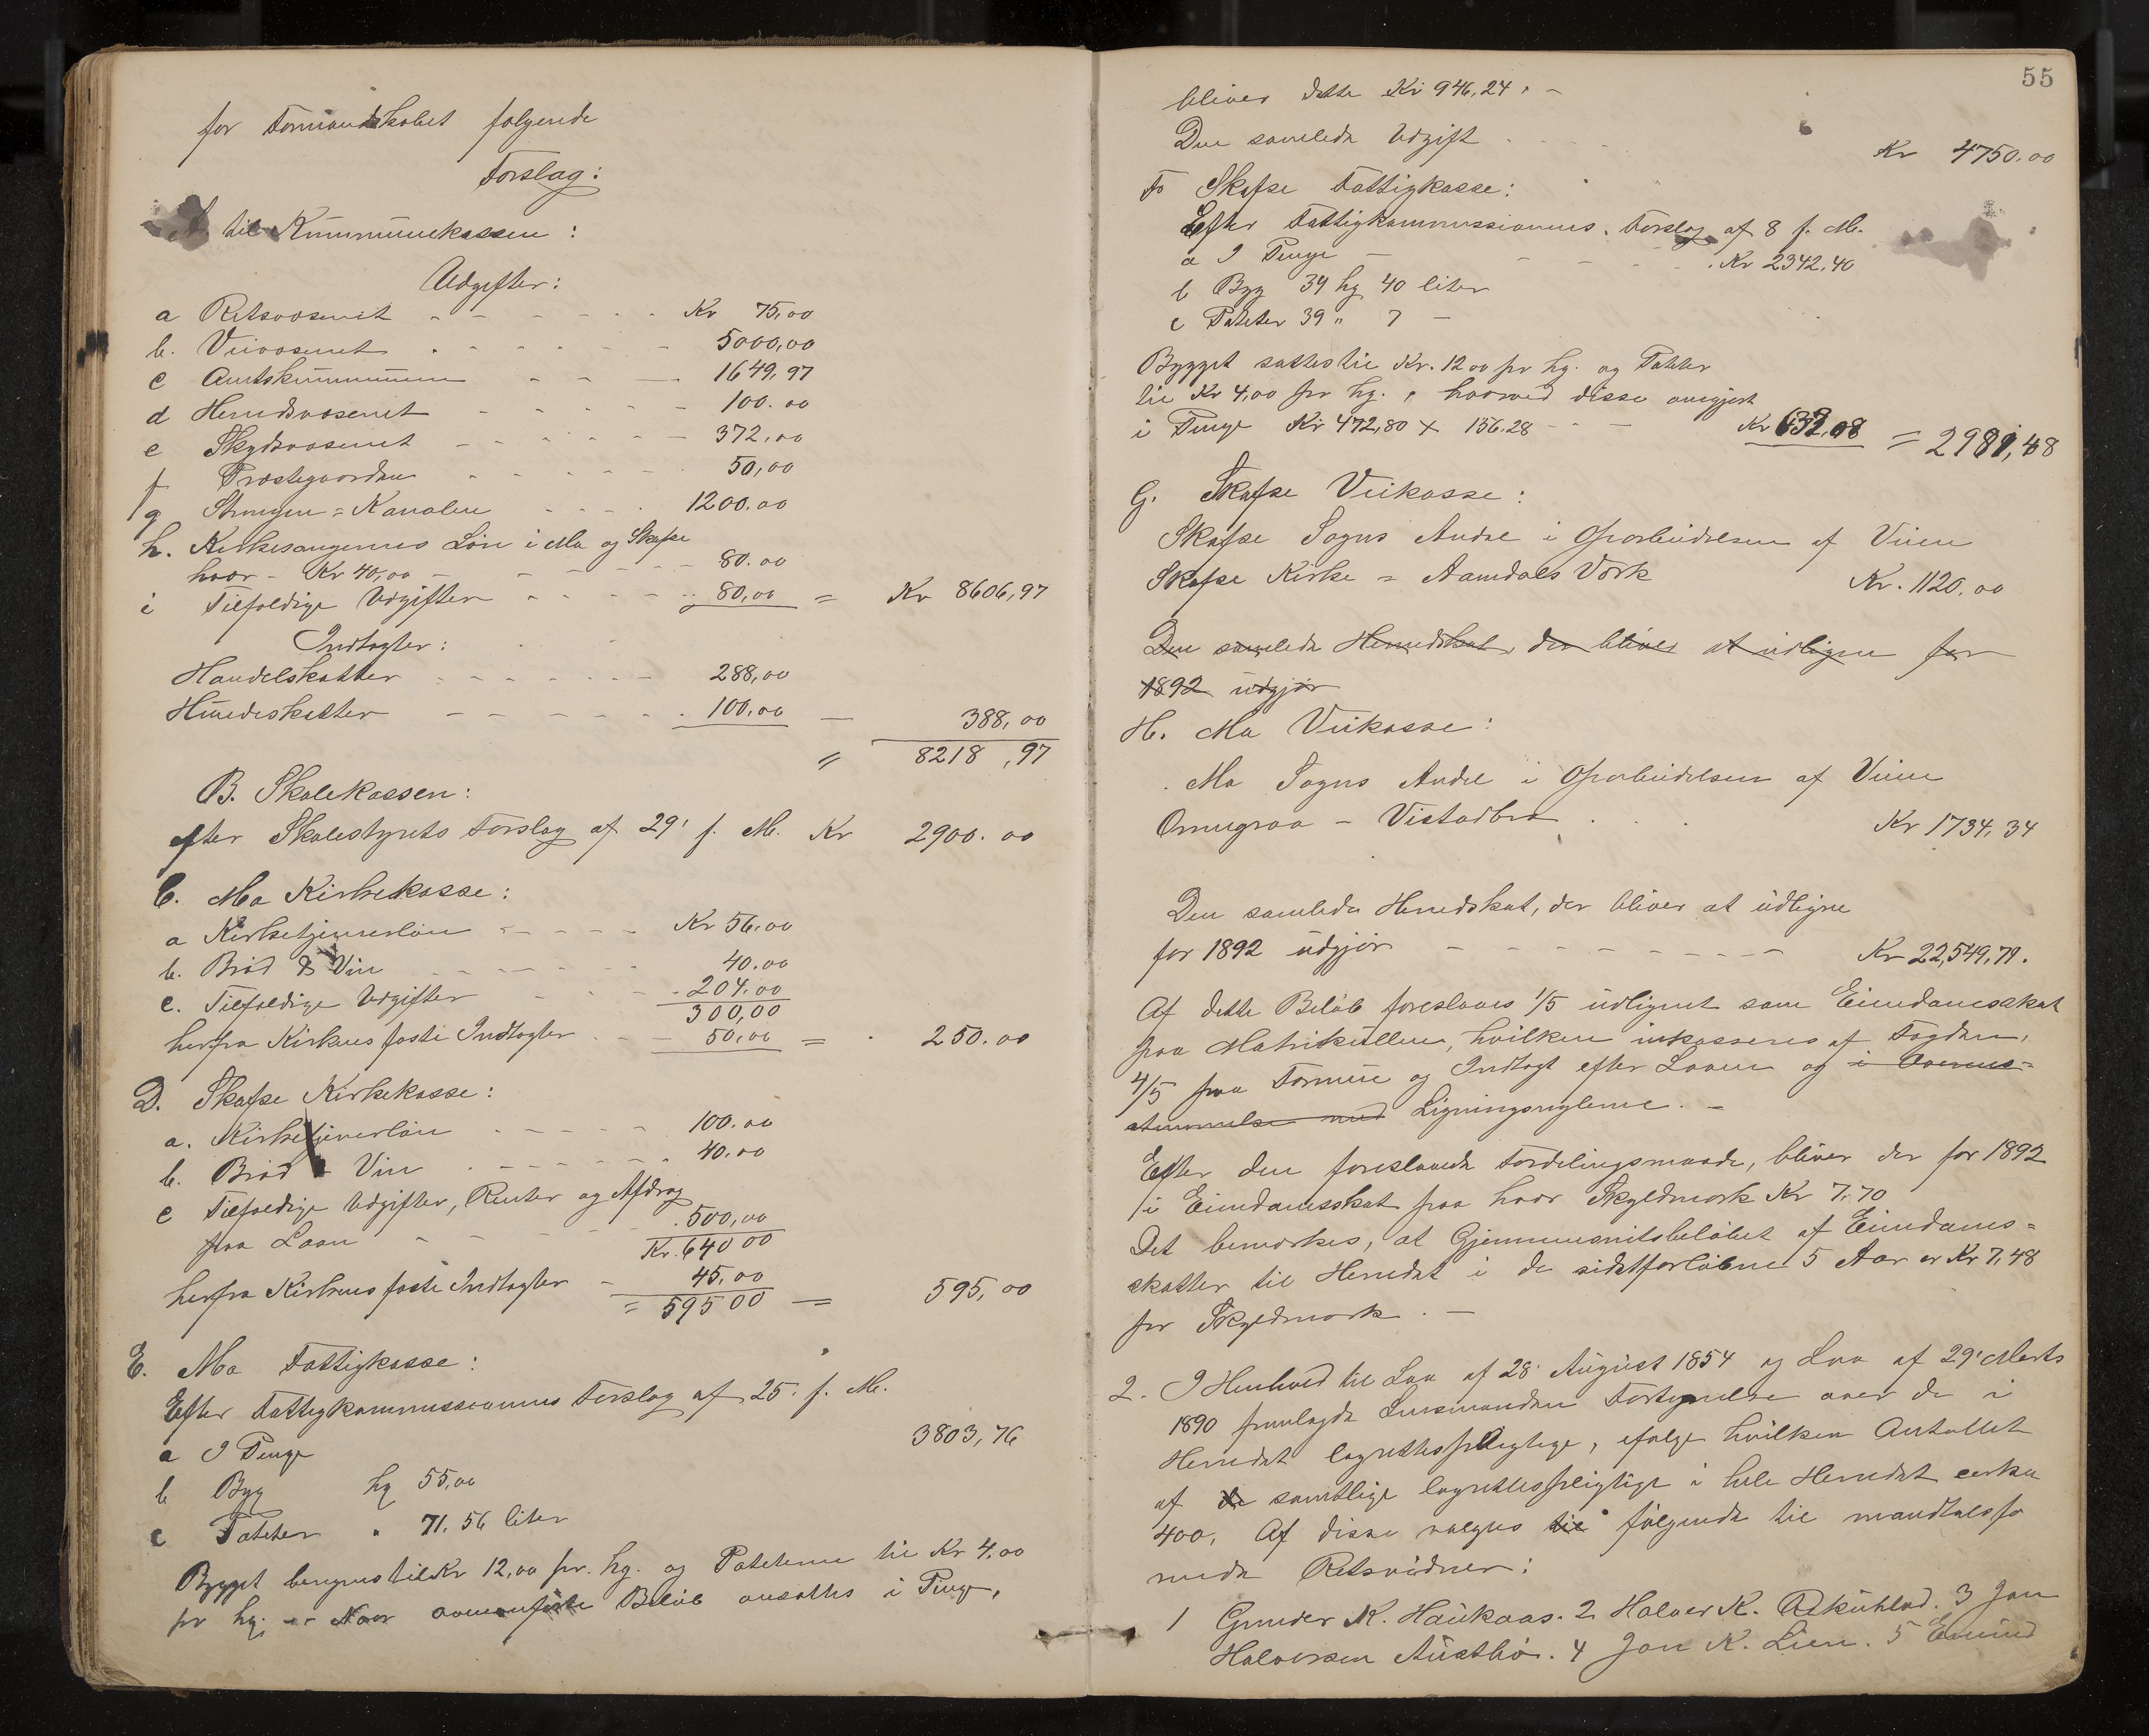 for Formandskabet følgende
Forslag:
A. til Kummunekassen:
Udgifter:
a Retsvæsenet - - - - - - Kr 75,00
b. Veivæsenet - - - - - - 5000,00
c Amtskummunen - - - 1649,97
d Herredsvæsenet - - - - - 100.00
e Skydsvæsenet - - - - - - 372,00
f Præstegaarden - - - - - 50,00
g Strengen = Kanalen - - - - 1200.00
h. Kirkesangernes Løn i Mo og Skafse
hver - Kr 40,00 - - - - - - 80.00
i Tilfældige Udgifter - - - - - 80,00 = Kr 8606,97
Indtægter:
Handelskatter - - - - - - - 288,00
Hundeskatter - - - - - - 100,00 — 388,00
= 8218,97
B. Skolekassen:
efter Skolestyrets Forslag af 29' f. M. Kr 2900.00
C. Mo Kirkekasse:
a Kirketjenerløn - - - - - Kr 56.00
b. Brød & Vin - - - - - 40.00
c. Tilfældige Udgifter - - - 204.00
300,00
herfra Kirkens faste Indtægter - - - 50,00 = 250.00
D. Skafse Kirkekasse:
a. Kirketjenerløn - - - - - 100.00
b. Brød & Vin - - - - - - 40.00
c Tilfældige Udgifter, Renter og Afdrag
paa Laan - - - - - 500,00
Kr. 640 00
herfra Kirkens faste Indtægter - 45,00
= 595 00 = 595,00
E. Mo Fattigkasse:
Efter Fattigkommissionens Forslag af 25. f. M.
a I Penge 3803,76
b Byg hg 55,00
c Poteter " 71.56 liter
Bygget beregnes til Kr 12,00 pr. hg. og Poteterne til Kr 4,00
pr hg. Naar ovenanførte Beløb ansættes i Penge,
55
bliver dette Kr 946,24. -
Den samlede Udgift - - - - - Kr 4750.00
F Skafse Fattigkasse:
Efter Fattigkommissionens Forslag af 8 f. M.
a I Penge - - - - - - Kr 2342.40
b Byg 39 hg 40 liter
c Poteter 39 " 7 -
Bygget sættes til Kr. 12 00 pr hg. og Poteter
til Kr 4,00 pr hg. hvorved disse omgjort
i Penge Kr 472,80 + 156.28 - - - Kr 639,08 = 2981,48
G. Skafse Veikasse:
Skafse Sogns Andel i Oparbeidelsen af Veien
Skafse Kirke = Aamdals Værk Kr. 1120.00
Den samlede Herredskat, der bliver at udligne for
1892 udgjør
H. Mo Veikasse:
Mo Sogns Andel i Oparbeidelsen af Veien
Ormegraa - Vistadbro . . . Kr 1734,34
Den samlede Herredskat, der bliver at udligne
for 1892 udgjør - - - - - - - - Kr 22,549,79.
Af dette Beløb foreslaaes 1/5 udlignet som Eiendomsskat
paa Matrikullen, hvilken inkasseres af Fogden,
4/5 paa Formue og Indtægt efter Loven og i Overens-
stemmelse med Ligningsreglerne. -
Efter den foreslaaede Fordelingsmaade, bliver der for 1892
i Eiendomsskat paa hver Skyldmark Kr 7,70
Det bemærkes, at Gjennemsnitsbeløbet af Eiendoms=
skatter til Herredet i de sidstforløbne 5 Aar er Kr 7,48
pr Skyldmark. -
2. I Henhold til Lov af 28' August 1854 og Lov af 29' Marts
1890 fremlagde Lensmanden Fortegnelse over de i
Herredet lagrettespligtige, ifølge hvilken Antallet
af de samtlige lagrettespligtige i hele Herredet cerka
400. Af disse valgtes til følgende til mandtalsfø
rende Retsvidner:
1 Gunder K. Haukaas. 2 Halvor K. 3 Jon
Halvorsen Austbø. 4 Jon K. Lien. 5 Emund